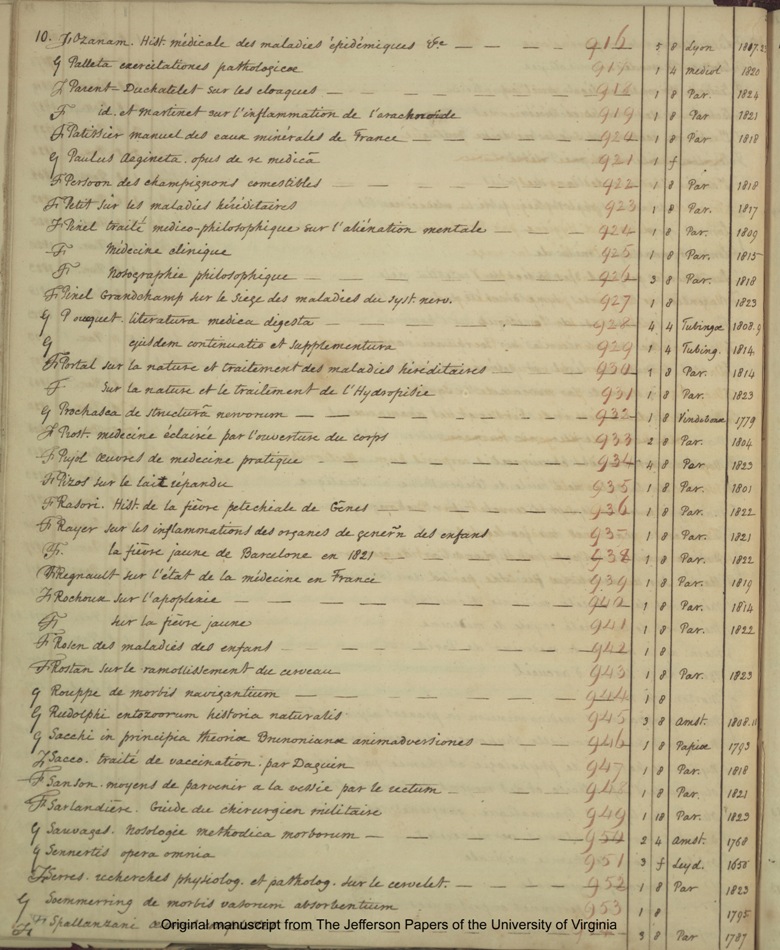 10. F Ozanam. Hist. médicale des maladies épidémiques &c 916 5 8 Lyon 1817.23
G Palleta exercitationes pathologicae 917 1 4 mediol 1820
F Parent-Duchatelet sur les cloaques 918 1 8 Par. 1824
F id. et Martinet sur l'inflammation de l'arachnoide 919 1 8 Par 1821
F Patissier manuel des eaux minérales de France 920 1 8 Par 1818
G Paulus Aegineta. opus de re medicâ 921 1 f
F Persoon des champignons comestibles 922 1 8 Par 1818
F Petit sur les maladies héréditaires 923 1 8 Par. 1817
F Pinel traité medico-philosophique sur l'aliénation mentale 924 1 8 Par. 1809
F Médecine clinique 925 1 8 Par. 1815
F Nosographie philosophique 926 3 8 Par. 1818
F Pinel Grandchamp sur le siege des maladies du syst. nerv. 927 1 8 1823
G Ploucquet. literatura medica digesta 928 4 4 Tubingae 1808.9
G ejusdem continuatio et supplementum 929 1 4 Tubing. 1814
F Portal sur la nature et traitement des maladies héréditaires 930 1 8 Par. 1814
F Sur la nature et le traitement de l'Hydropisie 931 1 8 Par. 1823
G Prochasca de structurâ nervorum 932 1 8 1779
F Prost. medecine éclairée par l'ouverture du corps 933 2 8 Par. 1804
F Pujol oeuvres de medecine pratique 934 4 8 Par 1823
F Pizos sur le lait répandu 935 1 8 Par. 1801
F Rasori. Hist. de la fièvre petechiale de Gênes 936 1 8 Par. 1822
F Rayer sur les inflammations des organes de genern des enfans 937 1 8 Par. 1821
F. la fièvre jaune de Barcelone en 1821 938 1 8 Par. 1822
F Regnault sur l'état de la médecine en France 939 1 8 Par. 1819
F Rochoux sur l'apoplexie 940 1 8 Par. 1814
F sur la fièvre jaune 941 1 8 Par. 1822
F Rosen des maladies des enfans 942 1 8
F Rostan sur le ramollissement du cerveau 943 1 8 Par. 1823
G Rouppe de morbis navigantium 944 1 8
G Rudolphi entozoorum historia naturalis 945 3 8 Amst. 1808.
G Sacchi in principia theoriae Brunonianae animadversiones 946 1 8 Papiae 1793
F Sacco. traité de vaccination. par Daquin 947 1 8 Par. 1818
F Sanson. moyens de parvenir a la vessie par le rectum 948 1 8 Par. 1821
F Sarlandière. Guide du chirurgien militaire 949 1 18 Par. 1823
G Sauvages. Nosologia methodica morborum 950 2 4 Amst. 1768
G Sennertis opera omnia 951 3 f Leyd. 1656
F Serres. recherches physiolog. et patholog. sur le cervelet. 952 1 8 Par 1823
G Soemmerring de morbis vasorum absorbentium 953 1 8 1795
F Spallanzani 3 8 Par 1787
Original manuscript from The Jefferson Papers of the University of Virginia